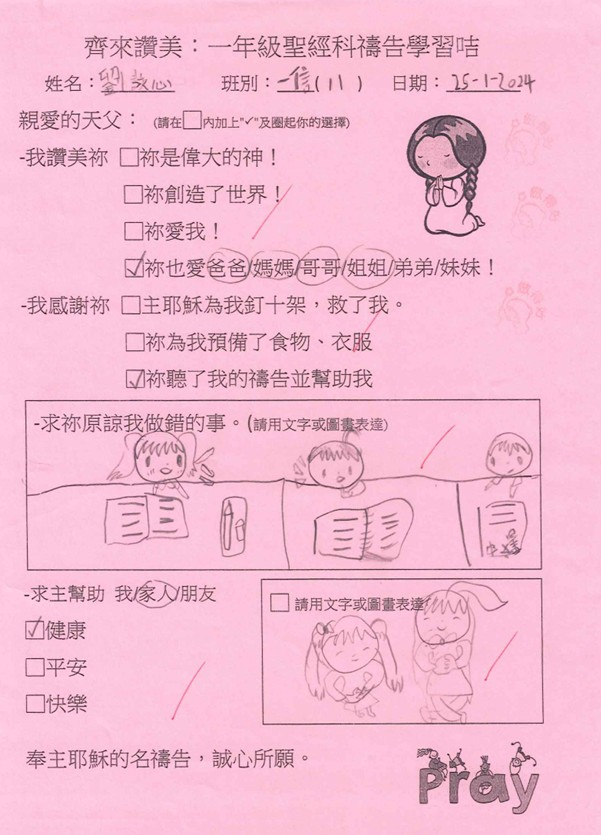 齊來讚美：一年級聖經科禱告學習咭
姓名：劉 心 班別：一信(11) 日期：25-1-2024
親愛的天父： (請在□內加上"✓"及圈起你的選擇)
-我讚美祢 □祢是偉大的神！
□祢創造了世界！
□祢愛我！
☑祢也愛爸爸/媽媽/哥哥/姐姐/弟弟/妹妹！
-我感謝祢 □主耶穌為我釘十架，救了我。
□祢為我預備了食物、衣服
☑祢聽了我的禱告並幫助我
-求祢原諒我做錯的事。(請用文字或圖畫表達)
-求主幫助 我/家人/朋友
☑健康
□平安
□快樂
□ 請用文字或圖畫表達
奉主耶穌的名禱告，誠心所願。
Pray